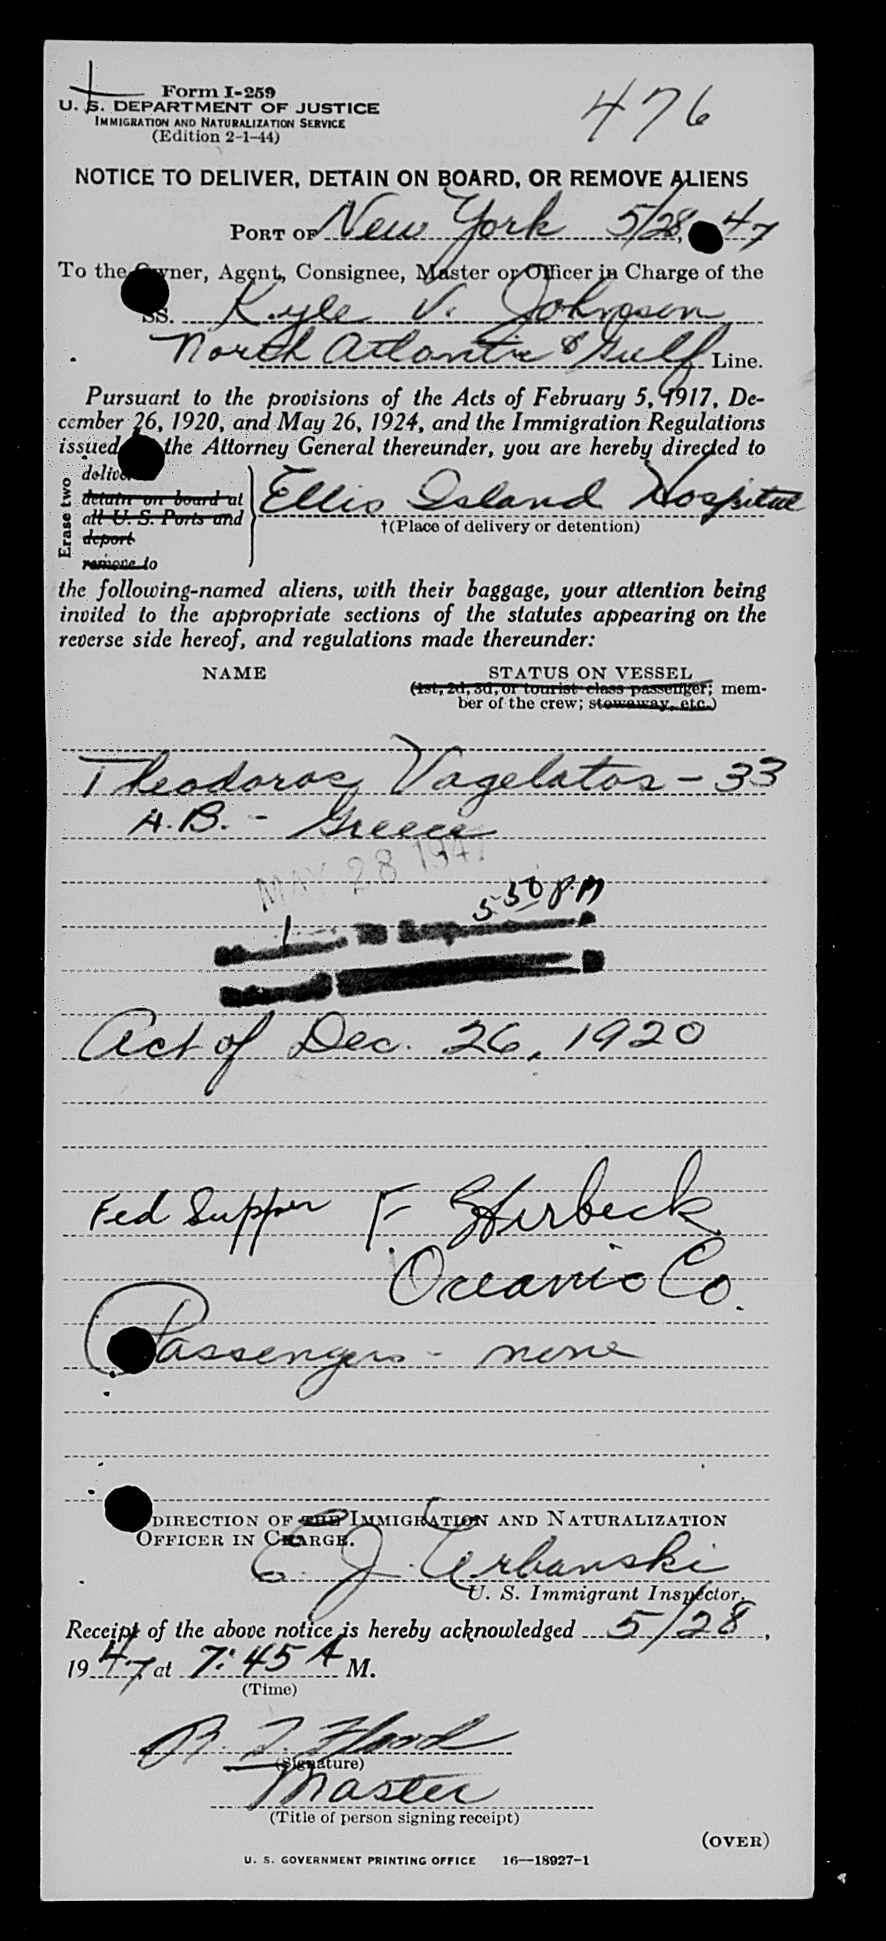 Form I-259
U. S. DEPARTMENT OF JUSTICE
IMMIGRATION AND NATURALIZATION SERVICE
(Edition 2-1-44)
476
NOTICE TO DELIVER, DETAIN ON BOARD, OR REMOVE ALIENS
PORT OF New York 5/28, 47
To the Owner, Agent, Consignee, Master or Officer in Charge of the
SS. Kyle V. Johnson
North Atlantic & Gulf Line.
Pursuant to the provisions of the Acts of February 5, 1917, De-
cember 26, 1920, and May 26, 1924, and the Immigration Regulations
issued the Attorney General thereunder, you are hereby directed to
Erase two
deliver
detain on board at
all U. S. Ports and
deport
remove to
Ellis Island Hospital
†(Place of delivery or detention)
the following-named aliens, with their baggage, your attention being
invited to the appropriate sections of the statutes appearing on the
reverse side hereof, and regulations made thereunder:
NAME STATUS ON VESSEL
(1st, 2d, 3d, or tourist class passenger; mem-
ber of the crew; stowaway, etc.)
Theodoros Vagelatos - 33
A.B. - Greece
MAY 28 1947
5 30 P.M
Act of Dec. 26, 1920
Fed Supper F
Oceanic Co.
Passengers - none
DIRECTION OF THE IMMIGRATION AND NATURALIZATION
OFFICER IN CHARGE.
E. J. Urbanski
U. S. Immigrant Inspector.
Receipt of the above notice is hereby acknowledged 5/28,
1947 at 7:45 A M.
(Time)
R. T. Flood
(Signature)
Master
(Title of person signing receipt)
(OVER)
U. S. GOVERNMENT PRINTING OFFICE 16—18927-1